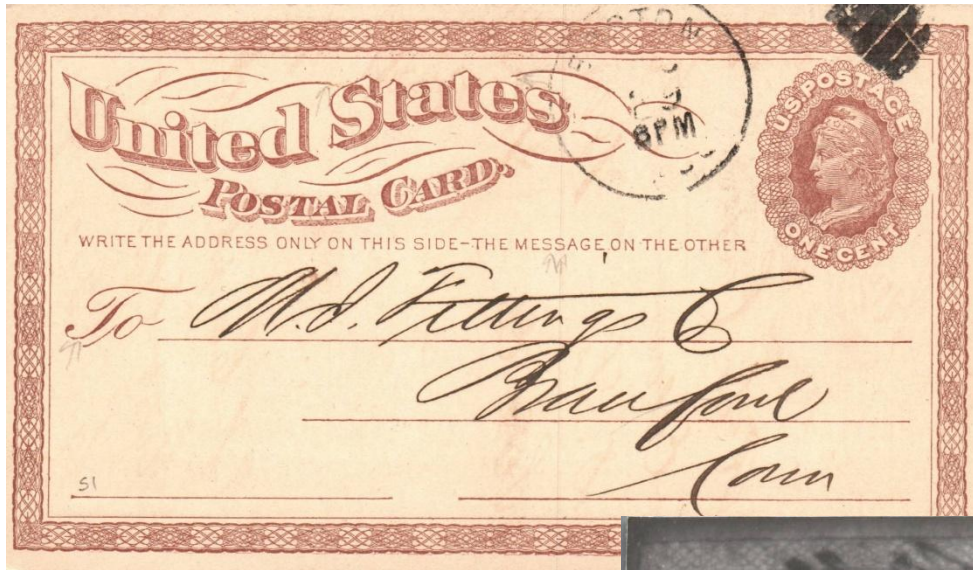 United States
POSTAL CARD.
U.S. POSTAGE
ONE CENT
8 PM
WRITE THE ADDRESS ONLY ON THIS SIDE-THE MESSAGE ON THE OTHER
To M. I. Fittings Co
Branford
Conn
51